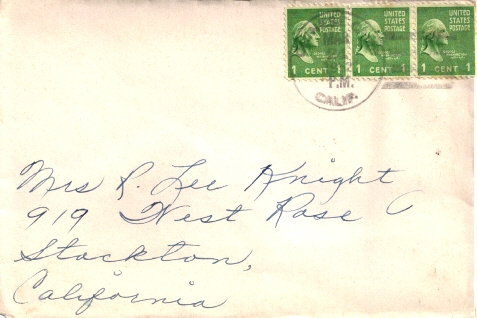 UNITED STATES POSTAGE 1 CENT 1
UNITED STATES POSTAGE 1 CENT 1
UNITED STATES POSTAGE 1 CENT 1
P.M.
CALIF.
Mrs R. Lee Knight
919 West Rose
Stockton,
California